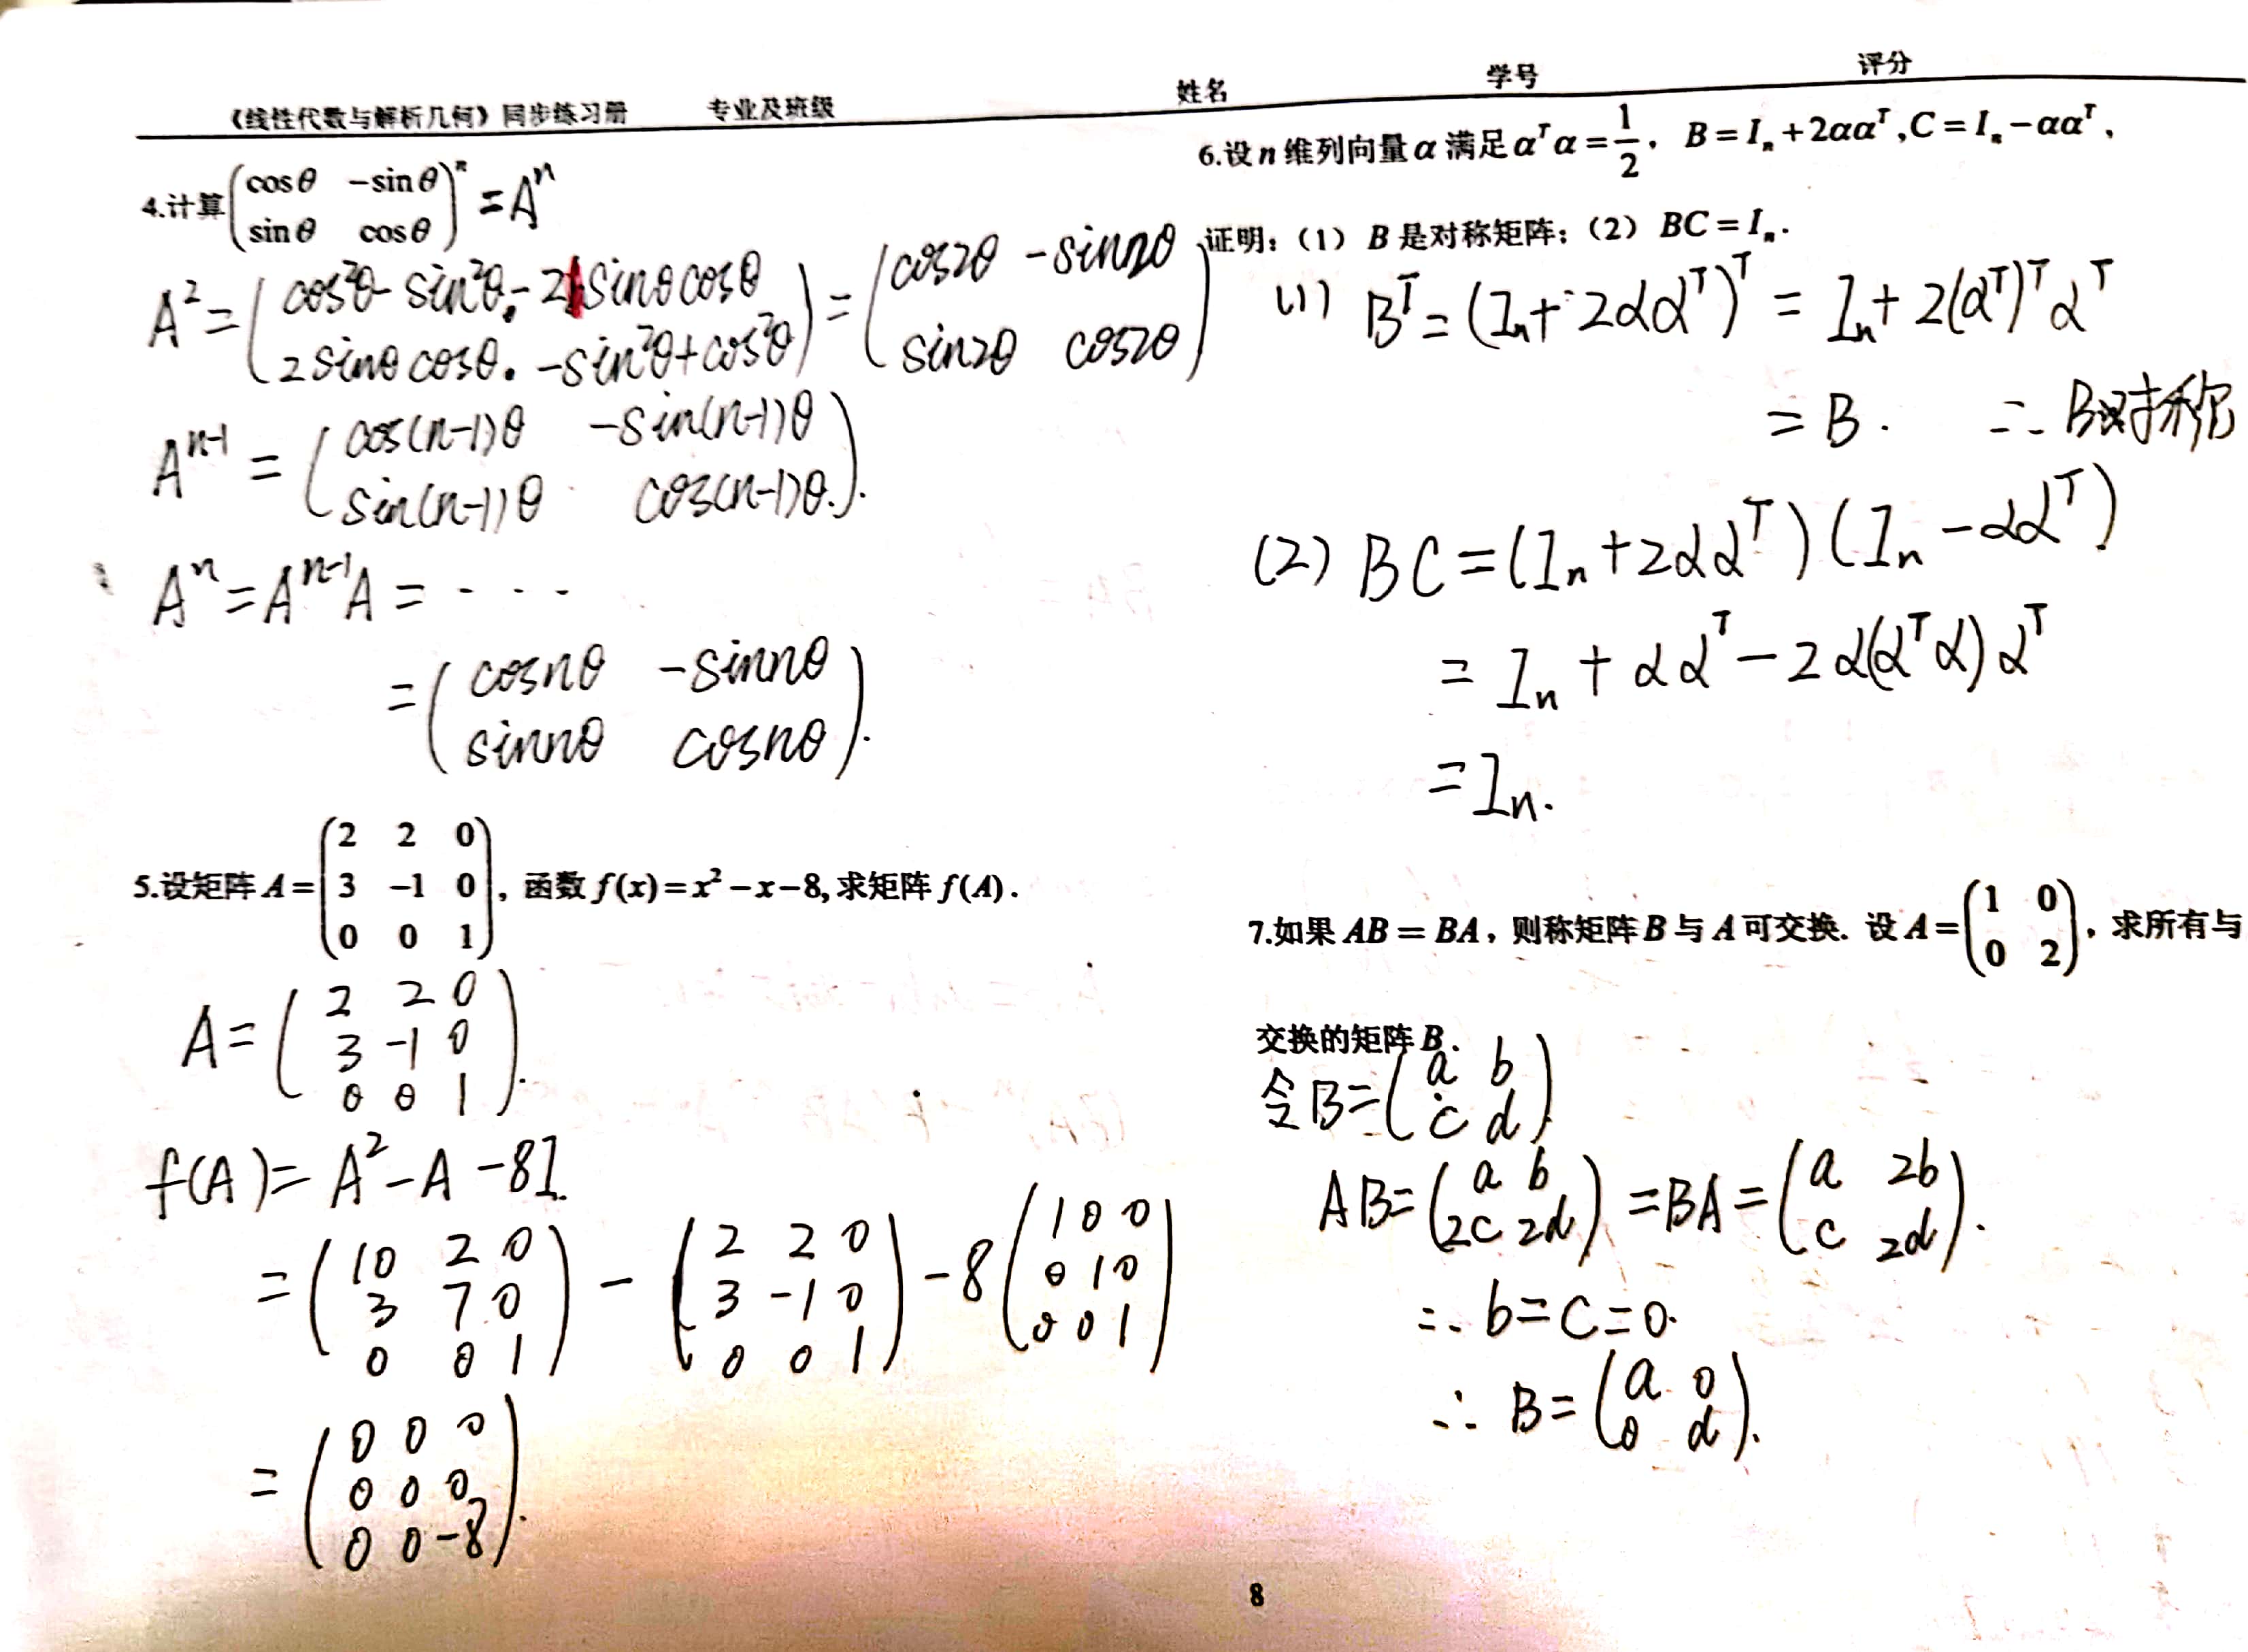 《线性代数与解析几何》同步练习册 专业及班级 姓名 学号 评分
4.计算(cosθ -sinθ
sinθ cosθ)ⁿ = Aⁿ
A² = (cos²θ - sin²θ, -2sinθcosθ
2sinθcosθ. -sin²θ+cos²θ) = (cos2θ -sin2θ
sin2θ cos2θ)
Aⁿ⁻¹ = (cos(n-1)θ -sin(n-1)θ
sin(n-1)θ cos(n-1)θ.).
Aⁿ = Aⁿ⁻¹A = ----
= (cosnθ -sinnθ
sinnθ cosnθ).
5.设矩阵 A = (2 2 0
3 -1 0
0 0 1), 函数 f(x) = x² - x - 8, 求矩阵 f(A).
A = (2 2 0
3 -1 0
0 0 1).
f(A) = A² - A - 8I.
= (10 2 0
3 7 0
0 0 1) - (2 2 0
3 -1 0
0 0 1) - 8(1 0 0
0 1 0
0 0 1)
= (0 0 0
0 0 0
0 0 -8).
6.设 n 维列向量 α 满足 αᵀα = 1/2, B = Iₙ + 2ααᵀ, C = Iₙ - ααᵀ,
证明:(1) B 是对称矩阵;(2) BC = Iₙ.
(1) Bᵀ = (Iₙ + 2ααᵀ)ᵀ = Iₙ + 2(αᵀ)ᵀαᵀ
= B. ∴ B对称
(2) BC = (Iₙ + 2ααᵀ)(Iₙ - ααᵀ)
= Iₙ + ααᵀ - 2α(αᵀα)αᵀ
= Iₙ.
7.如果 AB = BA, 则称矩阵 B 与 A 可交换. 设 A = (1 0
0 2), 求所有与
交换的矩阵 B.
令 B = (a b
c d)
AB = (a b
2c 2d) = BA = (a 2b
c 2d).
∴ b = c = 0.
∴ B = (a 0
0 d).
8